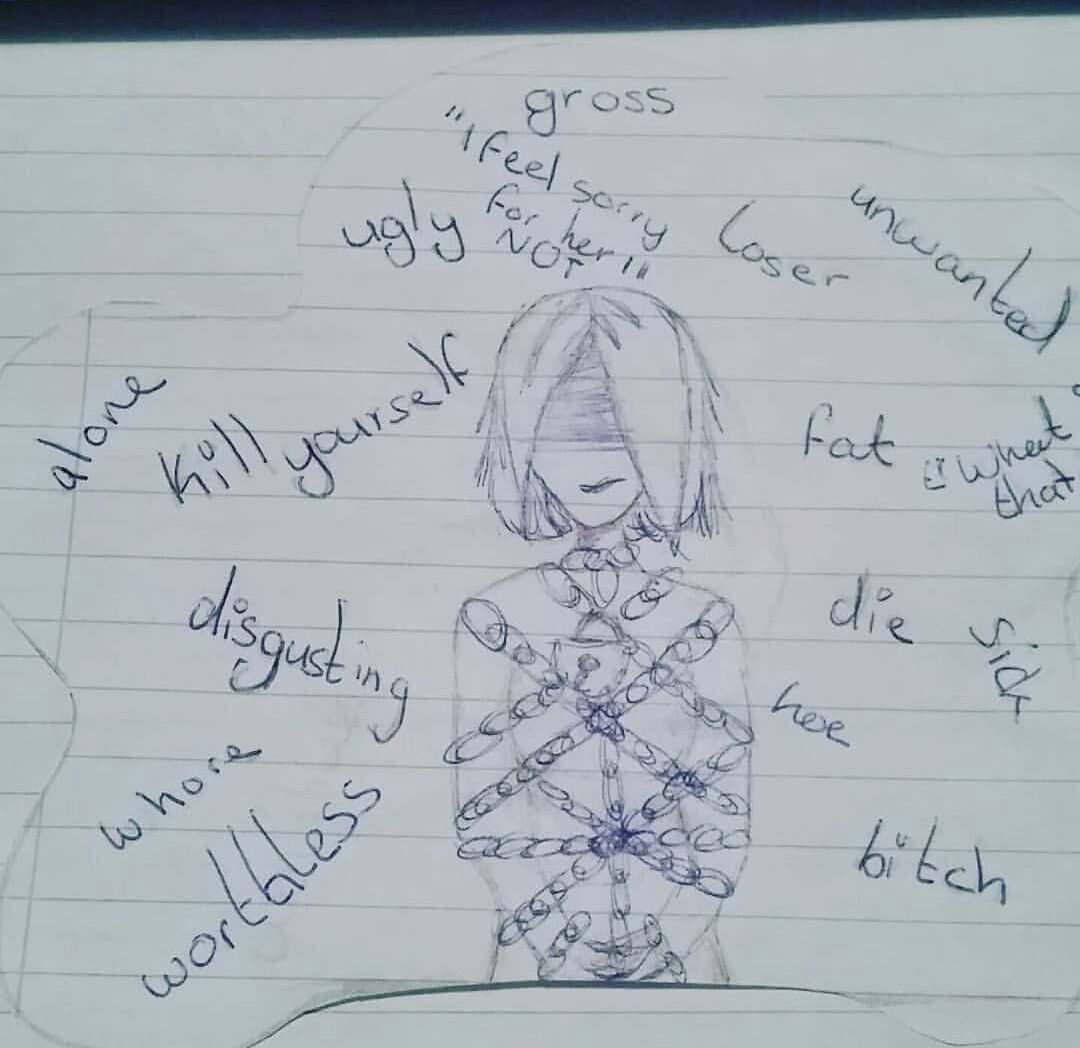 gross
"I feel sorry
for her
NOT"
ugly
loser
unwanted
alone
Kill yourself
fat
"what
that
disgusting
die
hoe
whore
worthless
bitch